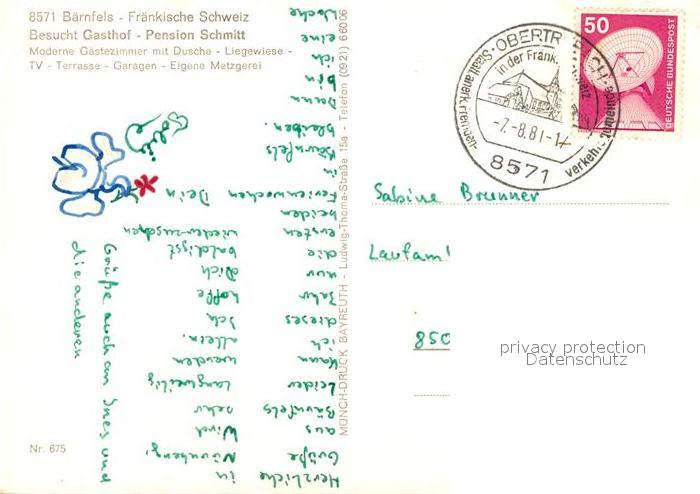 8571 Bärnfels - Fränkische Schweiz
Besucht Gasthof - Pension Schmitt
Moderne Gästezimmer mit Dusche - Liegewiese -
TV - Terrasse - Garagen - Eigene Metzgerei
Herzliche
Grüße
aus
Bärnfels
Leider
kann
ich
dieses
Jahr
nur
die
ersten
beiden
Ferienwochen
in
Bärnfels
bleiben.
Dann
bin
ich
eine
Woche
in
Nürnberg,
Wird
sehr
langweilig
werden
allein.
Ich
hoffe
Dich
baldigst
wiederzusehen
Dein
Grüße auch an Ines und
die anderen
Nr. 675
MÜNCH-DRUCK BAYREUTH - Ludwig-Thoma-Straße 15a - Telefon (0921) 66006
in der Fränk.
-7.-8.81-17
8571
50
DEUTSCHE BUNDESPOST
Sabine Brunner
Laufam
850
privacy protection
Datenschutz